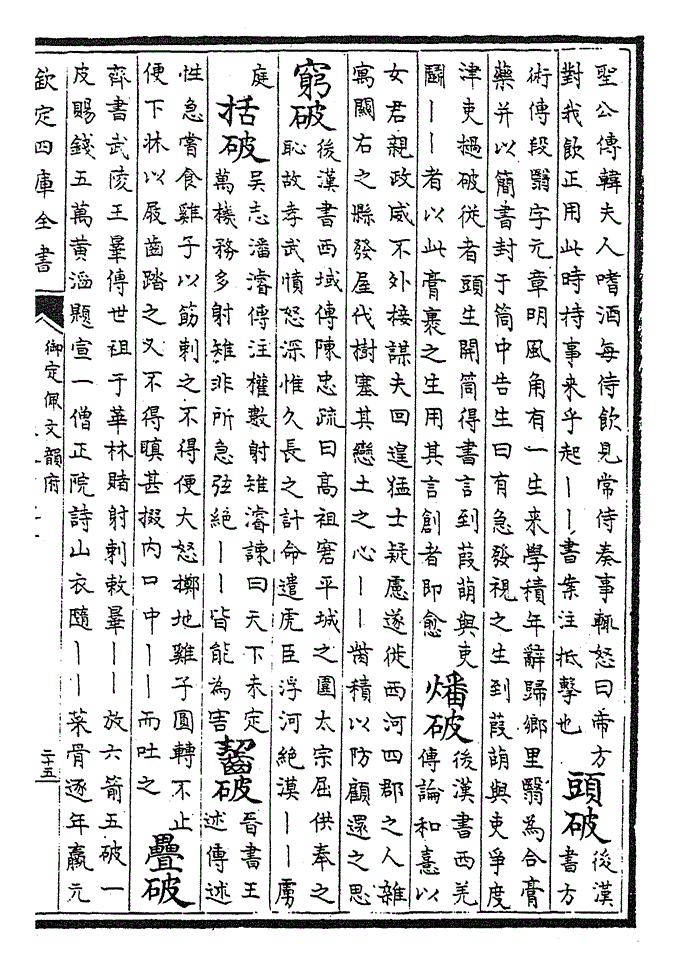 聖公傳韓夫人嗜酒每侍飲見常侍奏事輒怒曰帝方
對我飲正用此時持事来乎起丨丨書案注抵擊也
頭破
後漢
書方
術傳段翳字元章明風角有一生来學積年辭歸鄉里翳為合膏
藥并以簡書封于筒中告生曰有急發視之生到葭萌與吏爭度
津吏檛破從者頭生開筒得書言到葭萌與吏
鬬丨丨者以此膏裹之生用其言創者即愈
燔破
後漢書西羌
傳論和憙以
女君親政威不外接謀夫回遑猛士疑慮遂徙西河四郡之人雜
寓關右之縣發屋伐樹塞其戀土之心丨丨貲積以防顧還之思
窮破
後漢書西域傳陳忠疏曰高祖窘平城之圍太宗屈供奉之
恥故孝武憤怒深惟久長之計命遣虎臣浮河絶漠丨丨虜
庭
括破
吴志潘濬傳注權數射雉濬諫曰天下未定
萬機務多射雉非所急弦絶丨丨皆能為害
齧破
晉書王
述傳述
性急嘗食雞子以筋刺之不得便大怒擲地雞子圓轉不止
便下牀以屐齒踏之又不得瞋甚掇内口中丨丨而吐之
疊破
齊書武陵王曅傳世祖于華林賭射剌敕曅丨丨放六箭五破一
皮賜錢五萬黄滔題宣一僧正院詩山衣隨丨丨菜骨逐年羸元
欽定四庫全書
御定佩文韻府
二十五